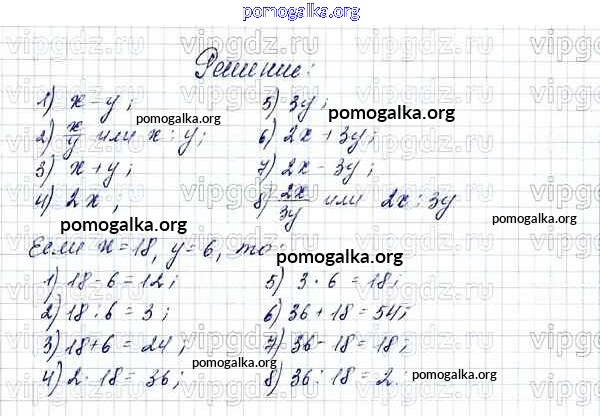 pomogalka.org
Решение:
1) x - y;
5) 3y;
2) x/y или x : y;
6) 2x + 3y;
3) x + y;
7) 2x - 3y;
4) 2x;
8) 2x/3y или 2x : 3y
pomogalka.org
pomogalka.org
pomogalka.org
pomogalka.org
Если x = 18, y = 6, то:
pomogalka.org
1) 18 - 6 = 12;
5) 3 · 6 = 18;
2) 18 : 6 = 3;
6) 36 + 18 = 54;
3) 18 + 6 = 24;
7) 36 - 18 = 18;
4) 2 · 18 = 36;
8) 36 : 18 = 2.
pomogalka.org
pomogalka.org
vipgdz.ru